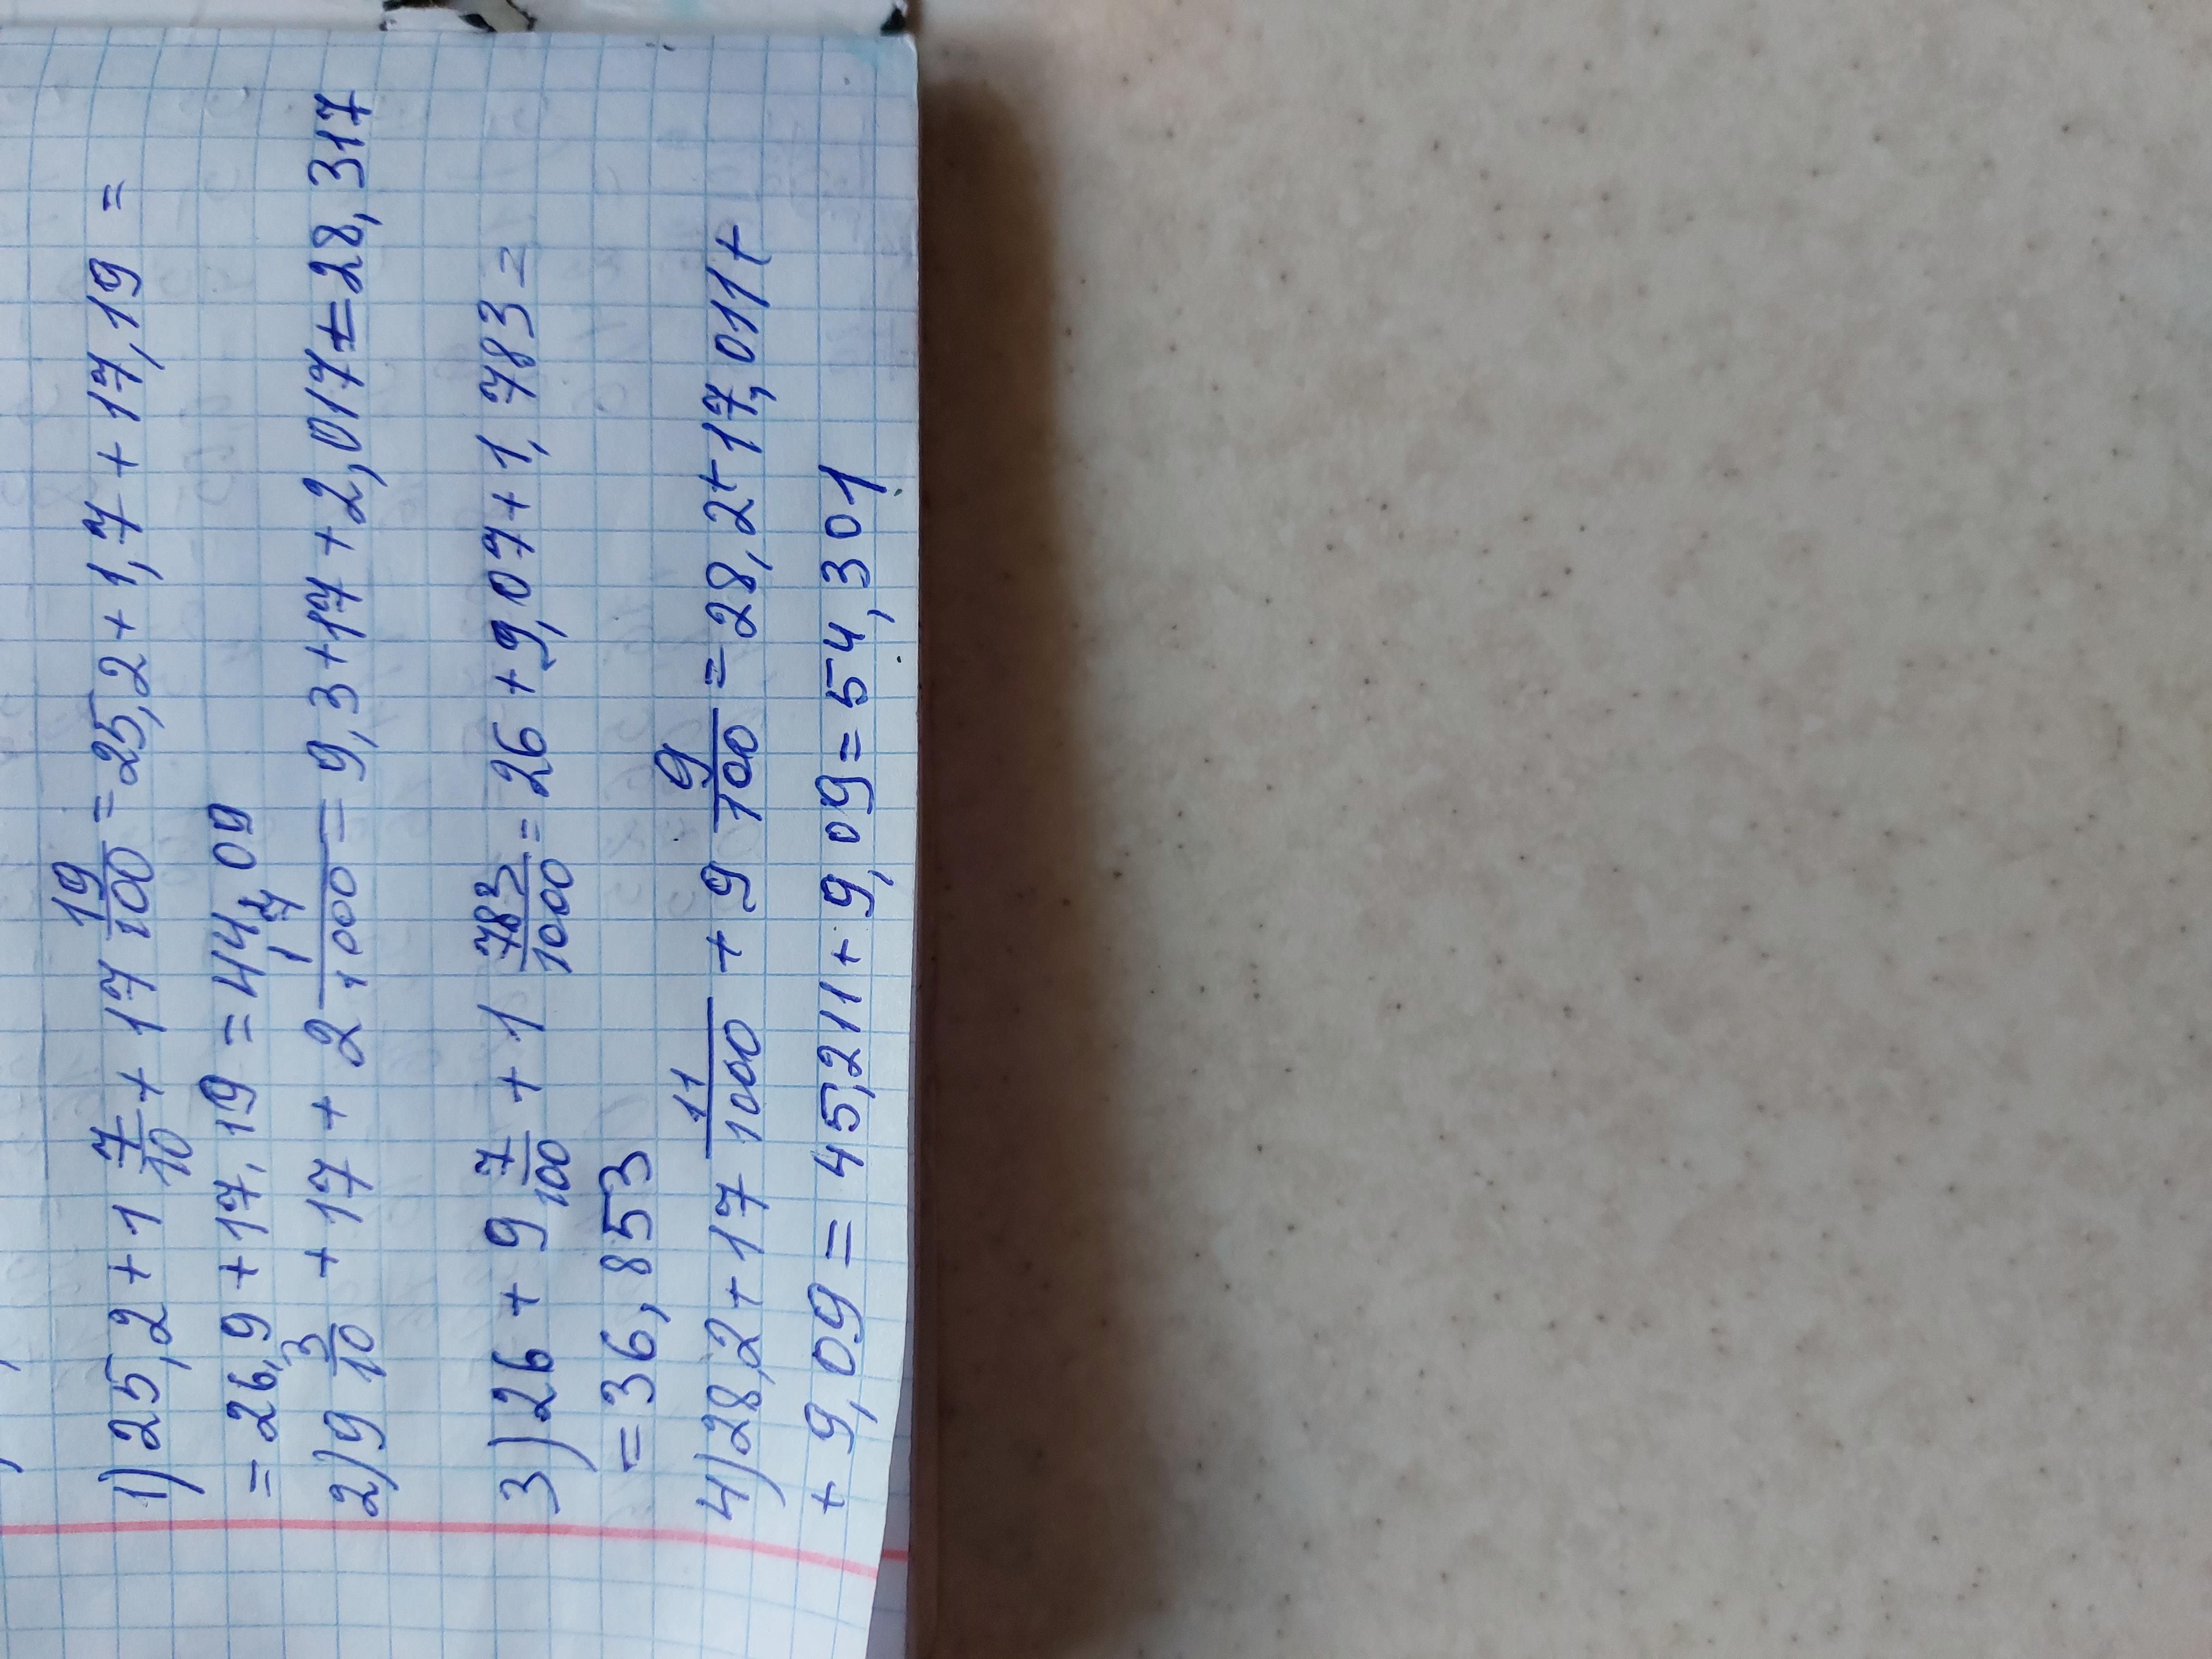 1) 25,2 + 1 7/10 + 17 19/100 = 25,2 + 1,7 + 17,19 =
= 26,9 + 17,19 = 44,09
2) 9 3/10 + 17 + 2 17/1000 = 9,3 + 17 + 2,017 = 28,317
3) 26 + 9 7/100 + 1 783/1000 = 26 + 9,07 + 1,783 =
= 36,853
4) 28,2 + 17 11/1000 + 9 9/100 = 28,2 + 17,011 +
+ 9,09 = 45,211 + 9,09 = 54,301